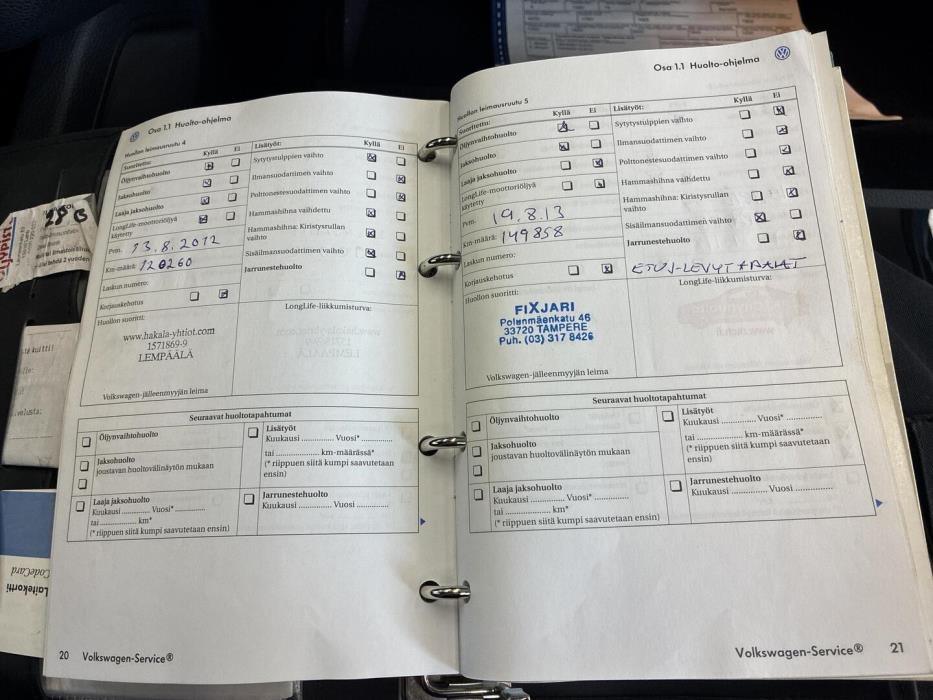 Osa 1.1 Huolto-ohjelma
Huollon leimausruutu 4
Suoritettu: Kyllä Ei Lisätyöt: Kyllä Ei
Öljynvaihtohuolto
Sytytystulppien vaihto
Jaksohuolto
Ilmansuodattimen vaihto
Laaja jaksohuolto
Polttonestesuodattimen vaihto
LongLife-moottoriöljyä
käytetty
Hammashihna vaihdettu
Pvm. 13.8.2012
Hammashihna: Kiristysrullan
vaihto
Km-määrä: 120260
Sisäilmansuodattimen vaihto
Laskun numero:
Jarrunestehuolto
Korjauskehotus
Huollon suoritti:
LongLife-liikkumisturva:
www.hakala-yhtiot.com
1571869-9
LEMPÄÄLÄ
Volkswagen-jälleenmyyjän leima
Seuraavat huoltotapahtumat
Öljynvaihtohuolto
Jaksohuolto
joustavan huoltovälinäytön mukaan
Laaja jaksohuolto
Kuukausi .............. Vuosi* ..............
tai .................... km*
(* riippuen siitä kumpi saavutetaan ensin)
Lisätyöt
Kuukausi .............. Vuosi* ..............
tai .................... km-määrässä*
(* riippuen siitä kumpi saavutetaan
ensin)
Jarrunestehuolto
Kuukausi .............. Vuosi ..............
20 Volkswagen-Service®
Osa 1.1 Huolto-ohjelma
Huollon leimausruutu 5
Suoritettu: Kyllä Ei Lisätyöt: Kyllä Ei
Öljynvaihtohuolto
Sytytystulppien vaihto
Jaksohuolto
Ilmansuodattimen vaihto
Laaja jaksohuolto
Polttonestesuodattimen vaihto
LongLife-moottoriöljyä
käytetty
Hammashihna vaihdettu
Pvm. 19.8.13
Hammashihna: Kiristysrullan
vaihto
Km-määrä: 149858
Sisäilmansuodattimen vaihto
Laskun numero:
Jarrunestehuolto
Korjauskehotus
ETUJ-LEVYT + PALAT
Huollon suoritti:
LongLife-liikkumisturva:
FIXJARI
Polunmäenkatu 46
33720 TAMPERE
Puh. (03) 317 8426
Volkswagen-jälleenmyyjän leima
Seuraavat huoltotapahtumat
Öljynvaihtohuolto
Jaksohuolto
joustavan huoltovälinäytön mukaan
Laaja jaksohuolto
Kuukausi .............. Vuosi* ..............
tai .................... km*
(* riippuen siitä kumpi saavutetaan ensin)
Lisätyöt
Kuukausi .............. Vuosi* ..............
tai .................... km-määrässä*
(* riippuen siitä kumpi saavutetaan
ensin)
Jarrunestehuolto
Kuukausi .............. Vuosi ..............
Volkswagen-Service® 21
Laitekortti
CodeCard